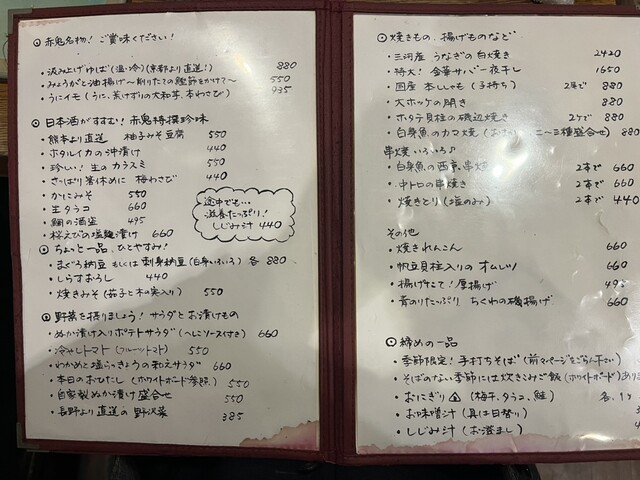 ⊙ 赤鬼名物! ご賞味ください!
・汲み上げゆば(温・冷)(京都より直送!) 880
・みょうがと油揚げ〜削りたての鰹節をかけて〜 550
・うにイモ(うに、荒けずりの大和芋、本わさび) 935
⊙ 日本酒がすすむ! 赤鬼特撰珍味
・熊本より直送 柚子みそ豆腐 550
・ホタルイカの沖漬け 440
・珍しい! 生のカラスミ 550
・さっぱり箸休めに 梅わさび 440
・かにみそ 550
・生タラコ 660
・鯛の酒盗 495
・桜えびの塩麹漬け 660
途中でも…
滋養たっぷり!
しじみ汁 440
⊙ ちょっと一品、ひとやすみ!
・まぐろ納豆 もしくは 刺身納豆(白身いろいろ) 各 880
・しらすおろし 440
・焼きみそ(茄子と木の実入り) 550
⊙ 野菜を摂りましょう! サラダとお漬けもの
・ぬか漬け入りポテトサラダ(へしこソースつき) 660
・冷やしトマト(フルーツトマト) 550
・わかめと塩らっきょうの和えサラダ 660
・本日のおひたし(ホワイトボード参照) 550
・自家製ぬか漬け盛合せ 550
・長野より直送の 野沢菜 385
⊙ 焼きもの、揚げものなど
・三河産 うなぎの白焼き 2420
・特大! 金華サバ 一夜干し 1650
・国産 本ししゃも(子持ち) 2尾で 880
・大ホッケの開き 880
・ホタテ貝柱の磯辺焼き 2ケで 880
・白身魚のカマ焼(二〜三種盛合せ) 880
串焼いろいろ♪
・白身魚の西京串焼 2本で 660
・中トロの串焼き 2本で 660
・焼きとり(塩のみ) 2本で 440
その他
・焼きれんこん 660
・帆立貝柱入りの オムレツ 660
・揚げたて! 厚揚げ 495
・青のりたっぷり、ちくわの磯揚げ 660
⊙ 締めの一品
・季節限定! 手打ちそば(前ページをごらん下さい)
・そばのない季節には炊きこみご飯(ホワイトボード)あり
・おにぎり(梅干、タラコ、鮭) 各、
・お味噌汁(具は日替り)
・しじみ汁(お澄まし)